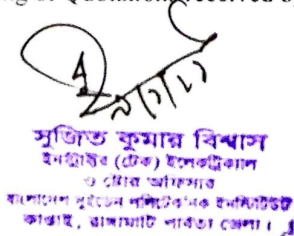 সুজিত কুমার বিশ্বাস
ইনস্ট্রাক্টর (টেক) ইলেকট্রিক্যাল
ও স্টোর অফিসার
বাংলাদেশ সুইডেন পলিটেকনিক ইনস্টিটিউট
কাপ্তাই, রাঙ্গামাটি পার্বত্য জেলা।